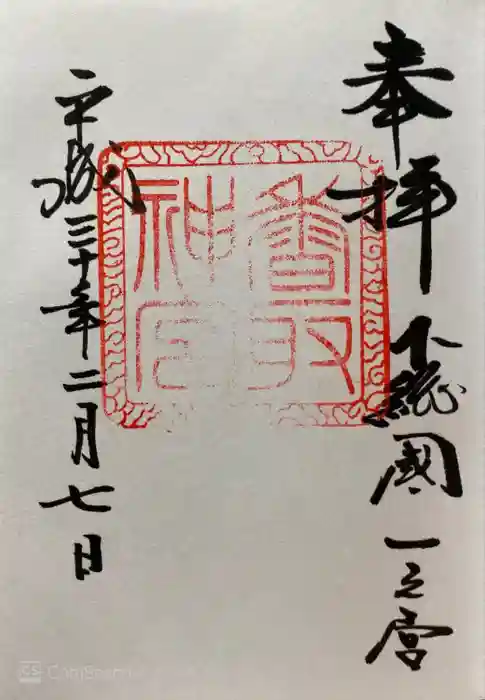 奉拝
下総國一之宮
香取神宮
平成三十年二月七日
CS CamScanner